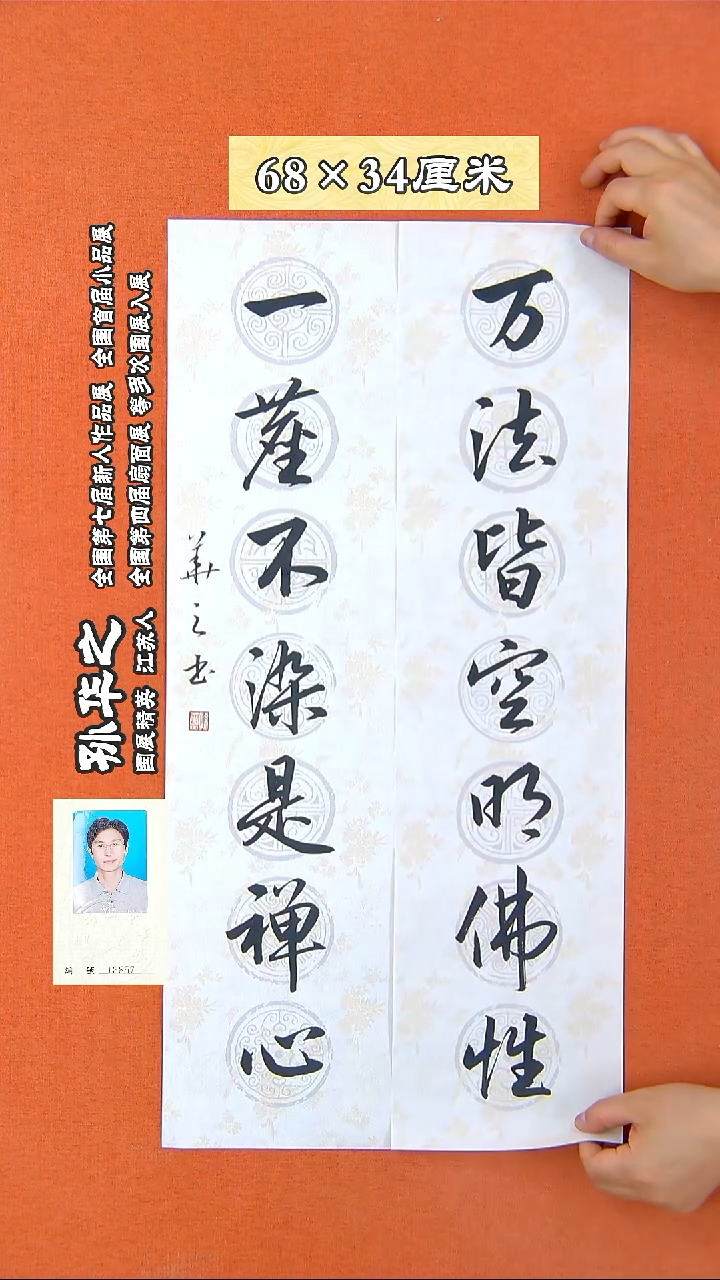 68×34厘米
万法皆空明佛性
一尘不染是禅心
華之书
孙华之
全国第七届新人作品展 全国首届小品展
国展精英 江苏人 全国第四届扇面展 等多次国展入展
编 号